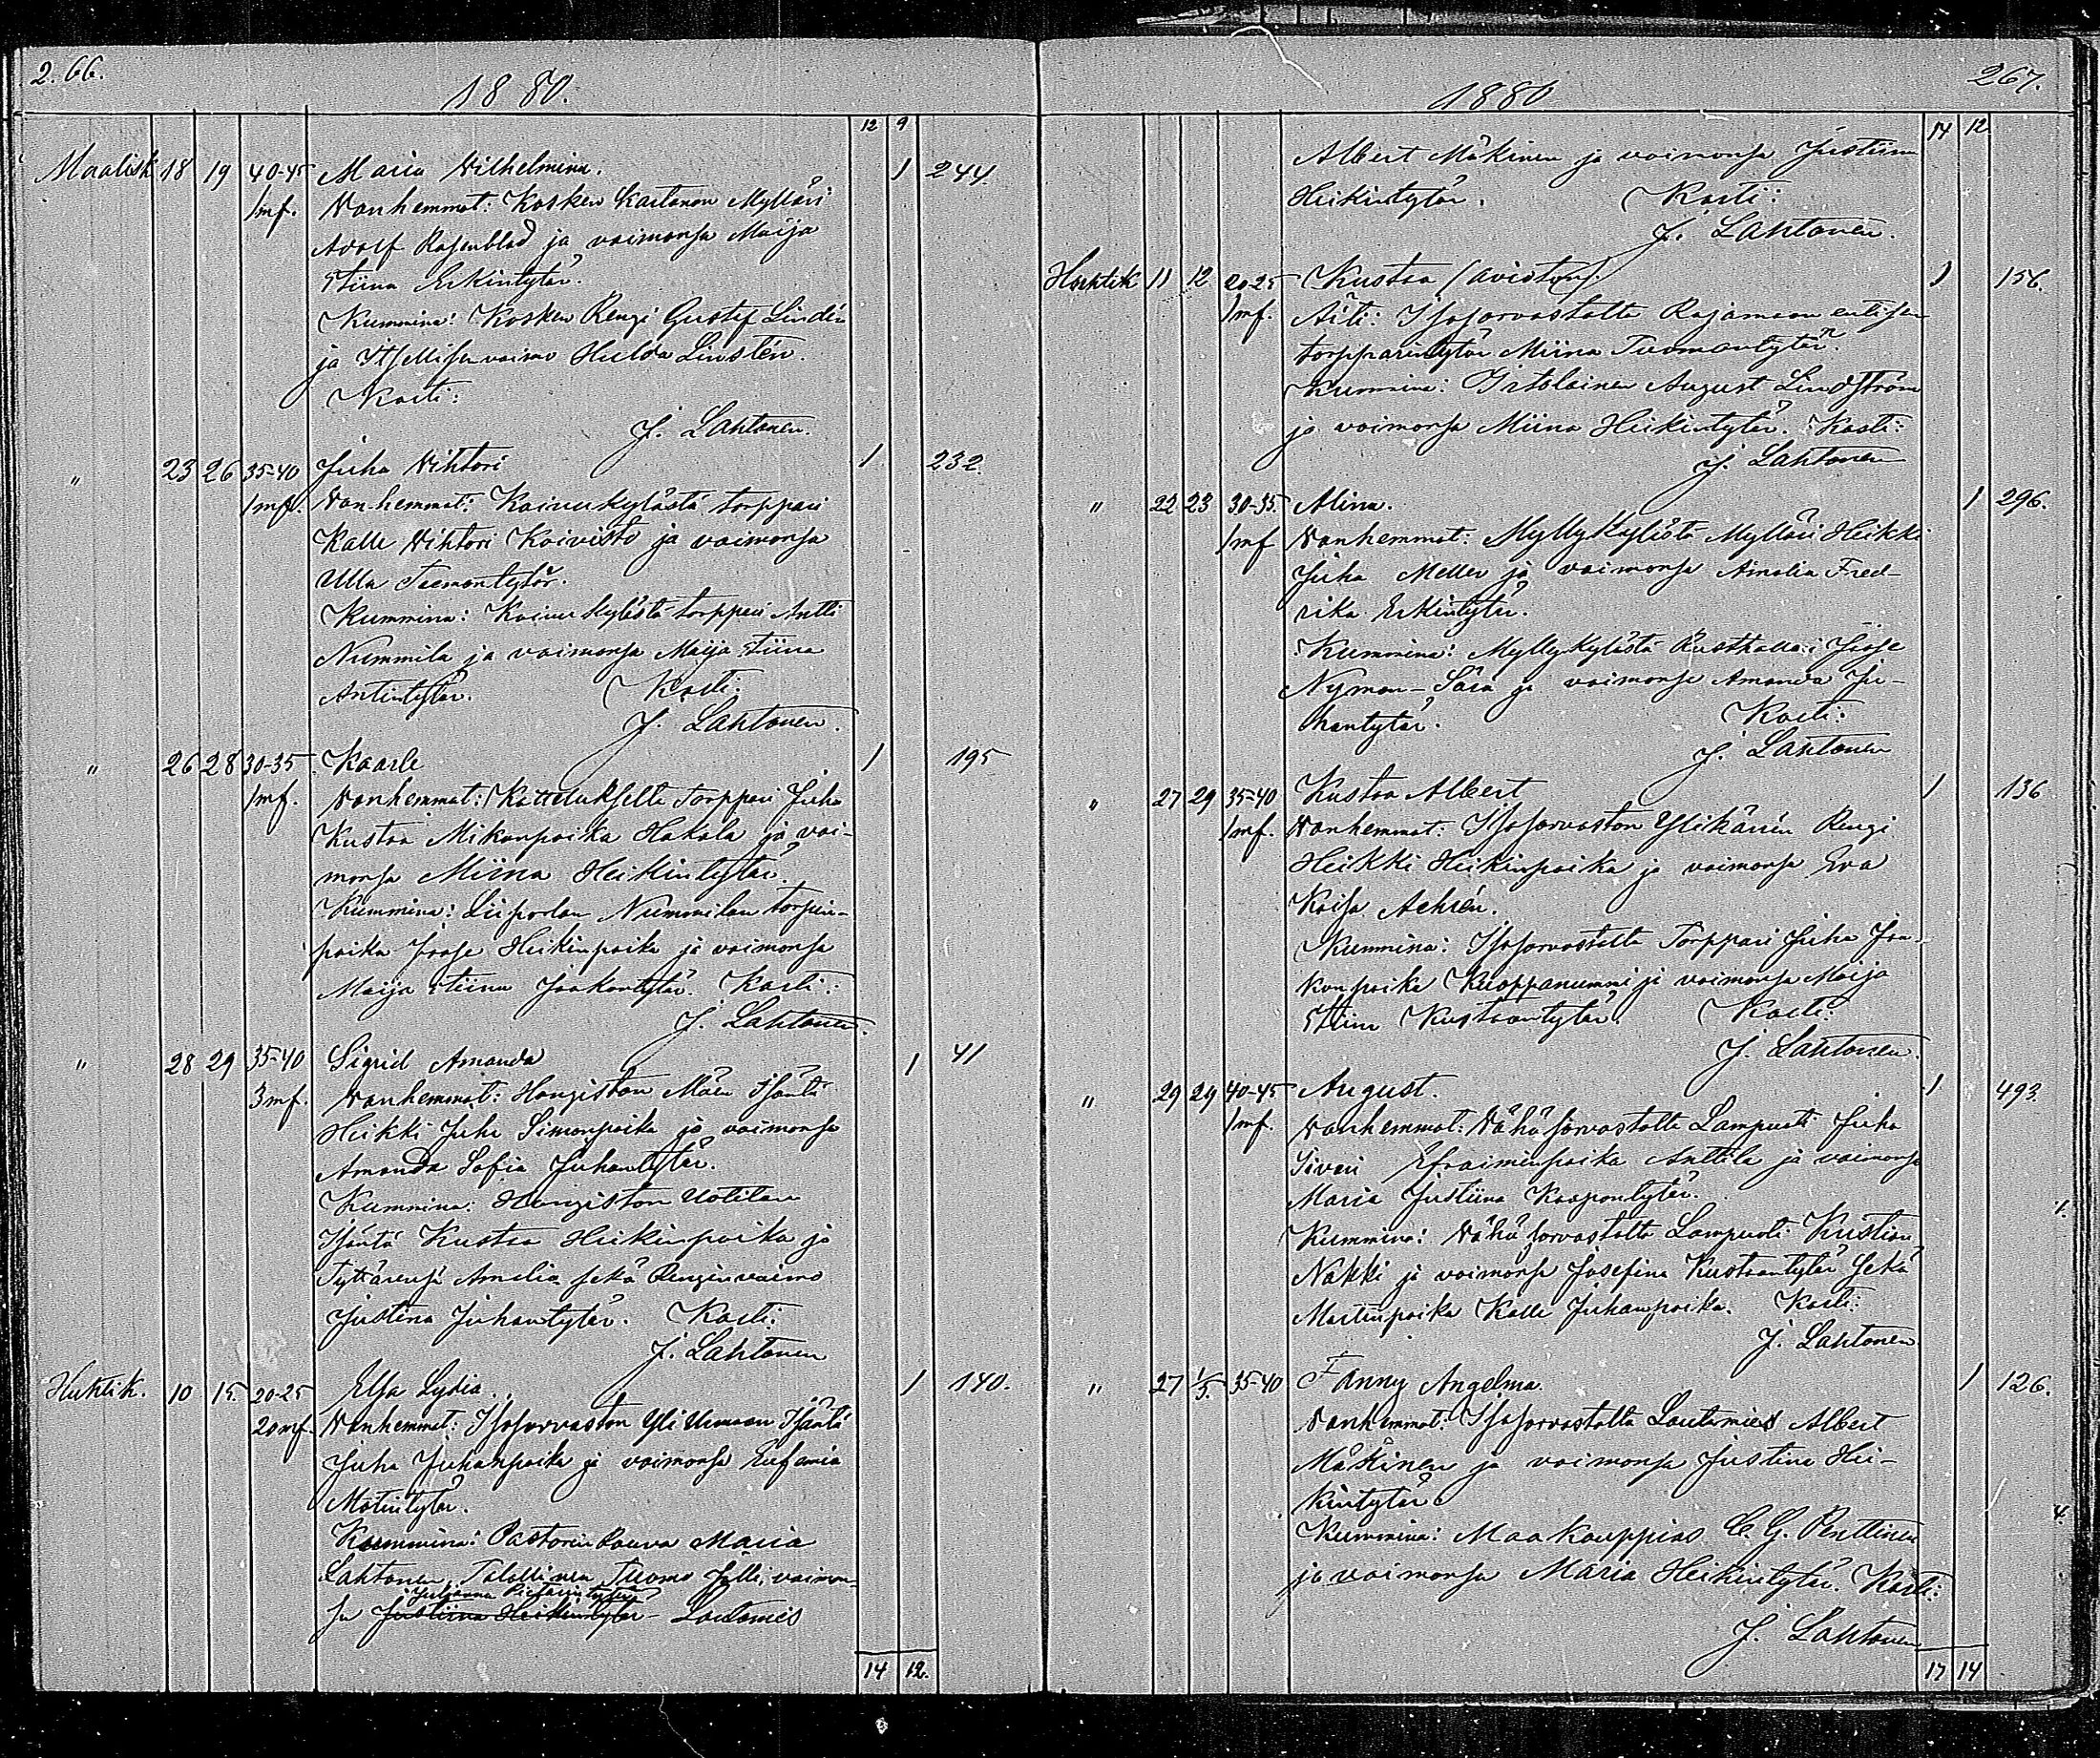 2.66.
1880.
12 9
Maalisk. 18 19 40-45 Maria Wilhelmina. 1 244.
1mf. Vanhemmat: Kosken Kartanon Mylläri
Adolf Rosenblad ja vaimonsa Maija
Stiina Erkintytär.
Kummina: Kosken Rengi Gustaf Lindén
ja Itsellisen vaimo Hulda Linstén.
Kasti:
J. Lahtonen.
" 23 26 35-40 Juha Vihtori 1 232.
1mf. Vanhemmat: Koivukylästä torppari
Kalle Vihtori Koivisto ja vaimonsa
Ulla Tuomontytär.
Kummina: Koivukylästä torppari Antti
Nummila ja vaimonsa Maija Stiina
Antintytär. Kasti:
J. Lahtonen.
" 26 28 30-35 Kaarle 1 195
1mf. Vanhemmat: Kattelukselta Torppari Juha
Kustaa Mikonpoika Hakala ja vai-
monsa Miina Heikintytär.
Kummina: Liiporlan Nummilan torpan-
poika Joose Heikinpoika ja vaimonsa
Maija Stiina Jaakontytär. Kasti:
J. Lahtonen.
" 28 29 35-40 Sigrid Amanda 1 41
3mf. Vanhemmat: Hongiston Mäen Isäntä
Heikki Juha Simonpoika ja vaimonsa
Amanda Sofia Juhantytär.
Kummina: Hongiston Uotilan
Isäntä Kustaa Heikinpoika ja
Tyttärensä Amelia sekä Rengin vaimo
Justina Juhantytär. Kasti:
J. Lahtonen
Huhtik. 10 15. 20-25 Elsa Lydia. 1 140.
20mf. Vanhemmat: Isosorvaston Yli Uunaan Isäntä
Juha Juhanpoika ja vaimonsa Eufemia
Matintytär.
Kummina: Pastorin Rouva Maria
Lahtonen, Talollinen Tuomo Jylli, vaimon-
Julianna Pietarintytär
sa Justiina Heikintytär - Lautamies
14 12.
267.
1880
14 12
Albert Mäkinen ja vaimonsa Justiina
Heikintytär. Kasti:
J. Lahtonen.
Huhtik 11 12 20-25 Kustaa (avioton). 1 156.
1mf. Äiti: Isosorvastolta Rajamaan entisen
torpparintytär Miina Tuomontytär.
Kummina: Irtolainen August Lindström
ja vaimonsa Miina Heikintytär. Kasti:
J. Lahtonen
" 22 23 30-35. Alina. 1 296.
1mf Vanhemmat: Myllykylästä Mylläri Heikki
Juha Meller ja vaimonsa Amalia Fred-
rika Erkintytär.
Kummina: Myllykylästä Rusthollari Joose
Nyman-Sära ja vaimonsa Amanda Ju-
hantytär. Kasti:
J. Lahtonen
" 27 29 35-40 Kustaa Albert 1 136
1mf. Vanhemmat: Isosorvaston Ylikännin Rengi
Heikki Heikinpoika ja vaimonsa Eva
Kaisa Achrén.
Kummina: Isosorvastolta Torppari Juha Jaa-
konpoika Kuoppanummi ja vaimonsa Maija
Stiina Kustaantytär. Kasti:
J. Lahtonen.
" 29 29 40-45 August. 1 493.
1mf. Vanhemmat: Vähäsorvastolta Lampuoti Juha
Iivari Efraiminpoika Anttila ja vaimonsa
Maria Justiina Kaapontytär.
Kummina: Vähäsorvastolta Lampuoti Kristian
Nakki ja vaimonsa Josefina Kustaantytär sekä
Martinpoika Kalle Juhanpoika. Kasti:
J. Lahtonen
" 27 1/5. 35-40 Fanny Angelma. 1 126.
Vanhemmat: Isosorvastolta Lautamies Albert
Mäkinen ja vaimonsa Justina Hei-
kintytär.
Kummina: Maakauppias C. G. Penttinen
ja vaimonsa Maria Heikintytär. Kasti:
J. Lahtonen
17 14